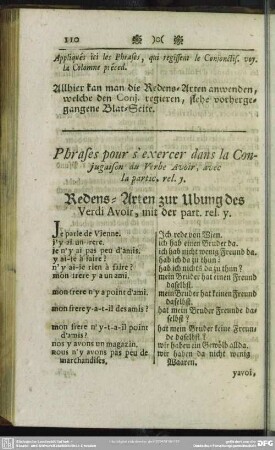 110
Appliqués ici les Phrases, qui regissent le Conjonctif. voy.
la Colomne préced.
Allhier kan man die Redens-Arten anwenden,
welche den Conj. regieren, siehe vorherge-
gangene Blat-Seite.
Phrases pour s'exercer dans la Con-
jugaison du Verbe Avoir, avec
la partic. rel. y.
Redens-Arten zur Ubung des
Verbi Avoir, mit der part. rel. y.
Je parle de Vienne.
j'y ai un frere.
je n'y ai pas peu d'amis.
y ai-je à faire?
n'y ai-je rien à faire?
mon frere y a un ami.
mon frere n'y a point d'ami.
mon frere y-a-t-il des amis?
mon frere n'y-t-a-il point
d'amis?
nos y avons un magazin.
nous n'y avons pas peu de
marchandises,
Ich rede von Wien.
ich hab einen Bruder da.
ich hab nicht wenig Freund da.
hab ich da zu thun?
hab ich nichts da zu thun?
mein Bruder hat einen Freund
daselbst.
mein Bruder hat keinen Freund
daselbst.
hat mein Bruder Freunde da-
selbst?
hat mein Bruder keine Freun-
de daselbst?
wir haben ein Gewölb allda.
wir haben da nicht wenig
Waaren.
yavoi,
DFG